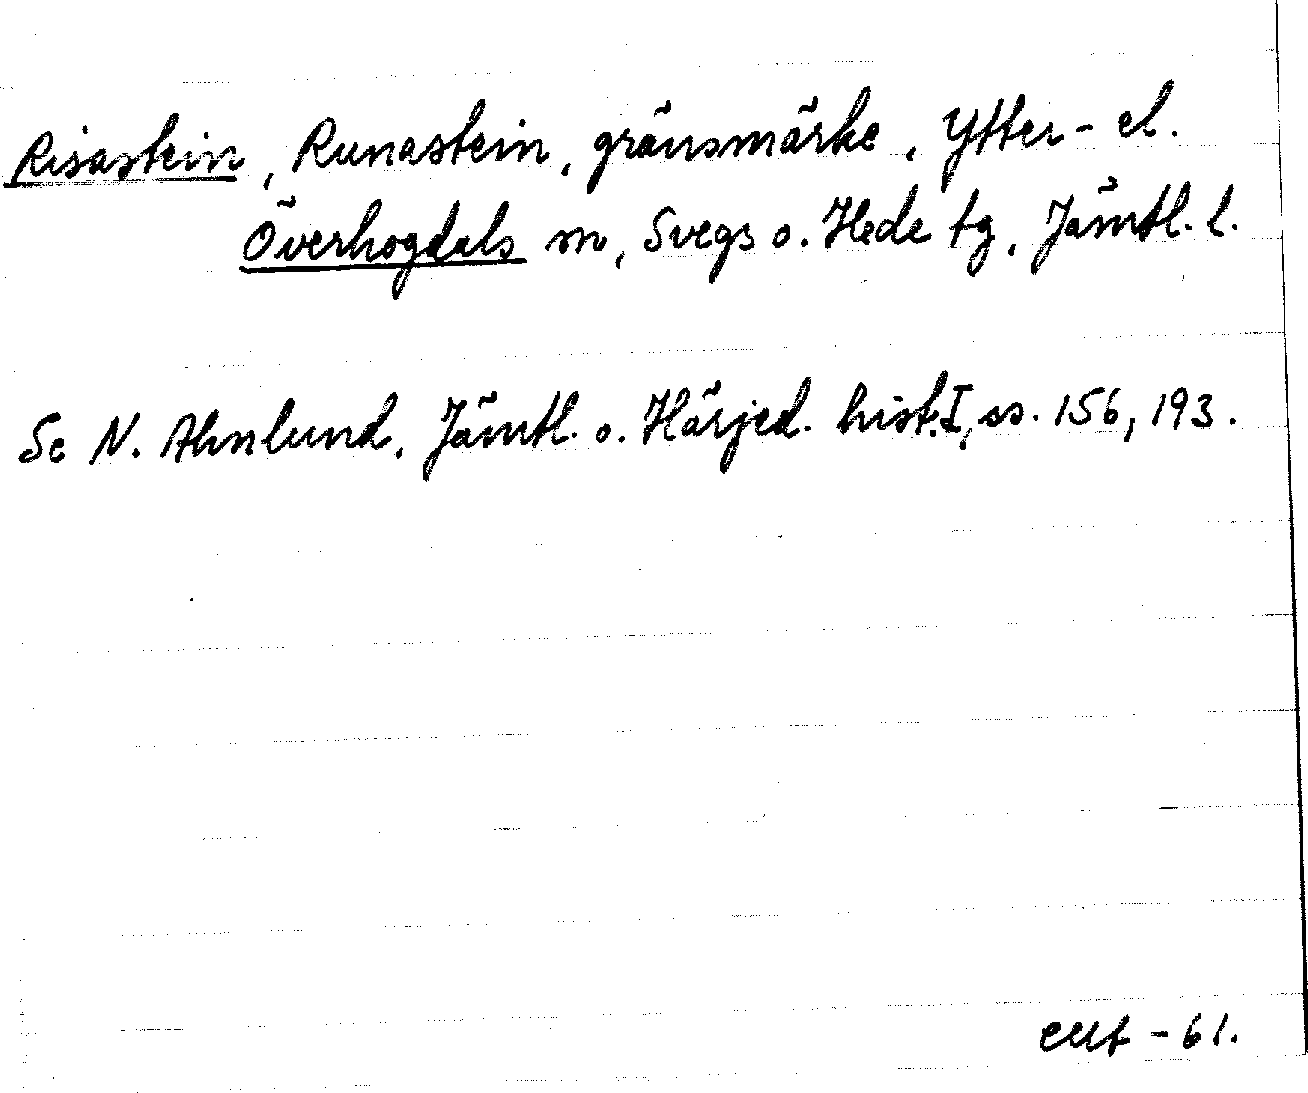 Risastein, Runastein, gränsmärke, Ytter- el.
Överhogdals sn, Svegs o. Hede tg, Jämtl. l.
Se N. Ahnlund, Jämtl. o. Härjed. hist. I, ss. 156, 193.
-61.